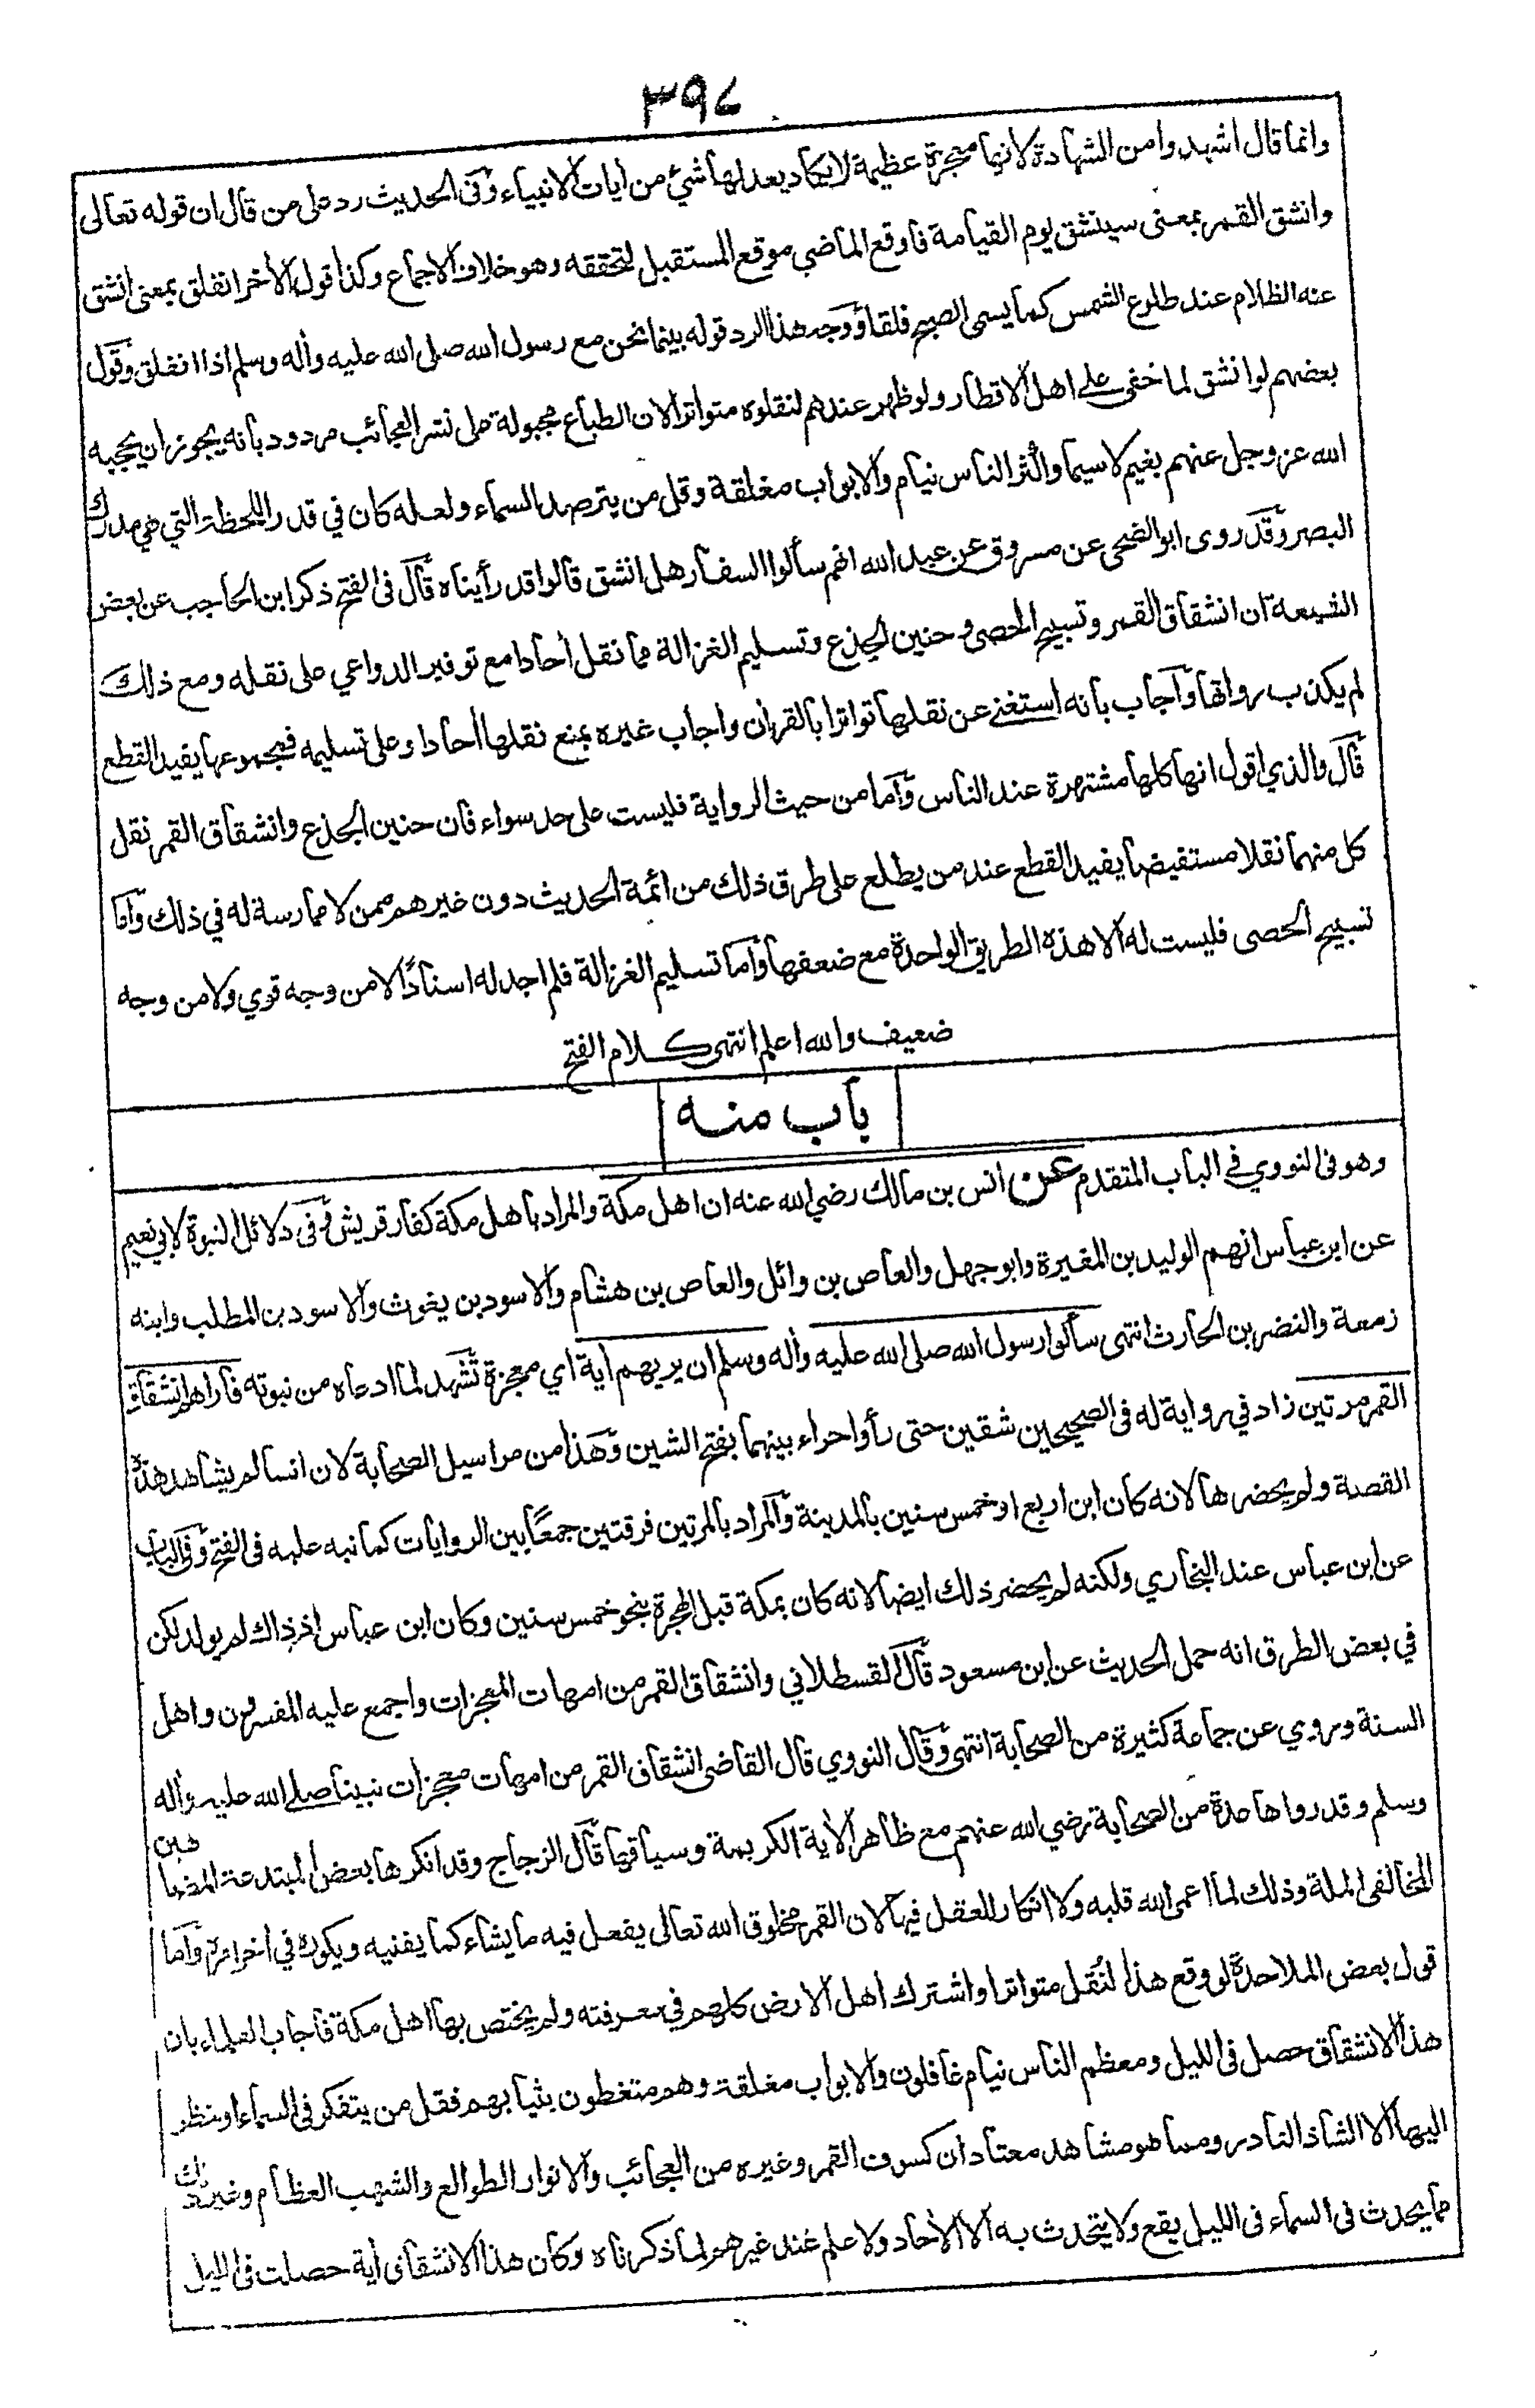 ٣٩٤
وانما قال اشهدوا من الشهادة لانها معجزة عظيمة لا يكاد يعدلها شيء من أيات الانبياء وفى الحديث رد على من قال ان قوله تعالى
وانشق القمر بمعنى سينشق يوم القيامة فاوقع الماضي موقع المستقبل لتحققه وهو خلاف الاجماع وكذا قول الأخر انفلق بمعنى انشق
عنه الظلام عند طلوع الشمس كما يسمى الصبح فلقا ووجه هذا الرد قوله بينما نحن مع رسول الله صلى الله عليه وأله وسلم اذا انفلق وقول
بعضهم لو انشق لما خفى على اهل الاقطار ولو ظهر عندهم لنقلوه متواترا لان الطباع مجبولة على نشر العجائب مردود بانه يجوز ان يحجبه
الله عز وجل عنهم بغيم لاسيما واكثر الناس نيام والابواب مغلقة وقل من يترصد السماء ولعله كان في قدر اللحظة التي هي مدرك
البصر وقد روى ابو الضحى عن مسروق عن عبد الله انهم سألوا السفار هل انشق قالوا قد رأيناه قال فى الفتح ذكر ابن الحاجب عن بعض
الشيعة ان انشقاق القمر وتسبيح الحصى وحنين الجذع وتسليم الغزالة مما نقل أحادا مع توفير الدواعي على نقله ومع ذلك
لم يكذب رواتها وأجاب بانه استغني عن نقلها تواترا بالقرأن واجاب غيره بمنع نقلها أحادا وعلى تسليمه فمجموعها يفيد القطع
قال والذي اقول انها كلها مشتهرة عند الناس وأما من حيث الرواية فليست على حد سواء فان حنين الجذع وانشقاق القمر نقل
كل منهما نقلا مستفيضا يفيد القطع عند من يطلع على طرق ذلك من ائمة الحديث دون غيرهم ممن لا ممارسة له في ذلك وأما
تسبيح الحصى فليست له الا هذه الطريق الواحدة مع ضعفها وأما تسليم الغزالة فلم اجد له اسنادًا لا من وجه قوي ولا من وجه
ضعيف والله اعلم انتهى كلام الفتح
باب منه
وهو فى النووي في الباب المتقدم عن انس بن مالك رضي الله عنه ان اهل مكة والمراد باهل مكة كفار قريش وفى دلائل النبوة لابي نعيم
عن ابن عباس انهم الوليد بن المغيرة وابو جهل والعاص بن وائل والعاص بن هشام والاسود بن يغوث والاسود بن المطلب وابنه
زمعة والنضر بن الحارث انتهى سألوا رسول الله صلى الله عليه وأله وسلم ان يريهم أية اي معجزة تشهد لما ادعاه من نبوته فأراهم انشقاق
القمر مرتين زاد في رواية له فى الصحيحين شقين حتى رأوا حراء بينهما بفتح الشين وهذا من مراسيل الصحابة لان انسا لم يشاهد هذه
القصة ولم يحضرها لانه كان ابن اربع او خمس سنين بالمدينة والمراد بالمرتين فرقتين جمعًا بين الروايات كما نبه عليه فى الفتح وفى الباب
عن ابن عباس عند البخاري ولكنه لم يحضر ذلك ايضا لانه كان بمكة قبل الهجرة بنحو خمس سنين وكان ابن عباس اذ ذاك لم يولد لكن
في بعض الطرق انه حمل الحديث عن ابن مسعود قال القسطلاني وانشقاق القمر من امهات المعجزات واجمع عليه المفسرون واهل
السنة وروي عن جماعة كثيرة من الصحابة انتهى وقال النووي قال القاضي انشقاق القمر من امهات معجزات نبينا صلى الله عليه وأله
وسلم وقد رواها عدة من الصحابة رضي الله عنهم مع ظاهر الأية الكريمة وسياقها قال الزجاج وقد انكرها بعض المبتدعة المضاهين
المخالفى الملة وذلك لما اعمى الله قلبه ولا انكار للعقل فيها لان القمر مخلوق الله تعالى يفعل فيه ما يشاء كما يفنيه ويكوره في أخر امره وأما
قول بعض الملاحدة لو وقع هذا لنُقل متواترا واشترك اهل الارض كلهم في معرفته ولم يختص بها اهل مكة فاجاب العلماء بان
هذا الانشقاق حصل فى الليل ومعظم الناس نيام غافلون والابواب مغلقة وهم متغطون بثيابهم فقل من يتفكر فى السماء او ينظر
اليها الا الشاذ النادر ومما هو مشاهد معتاد ان كسوف القمر وغيره من العجائب والانوار الطوالع والشهب العظام وغير ذلك
مما يحدث فى السماء فى الليل يقع ولا يتحدث به الا الأحاد ولا علم عند غيرهم لما ذكرناه وكان هذا الانشقاق أية حصلت فى الليل